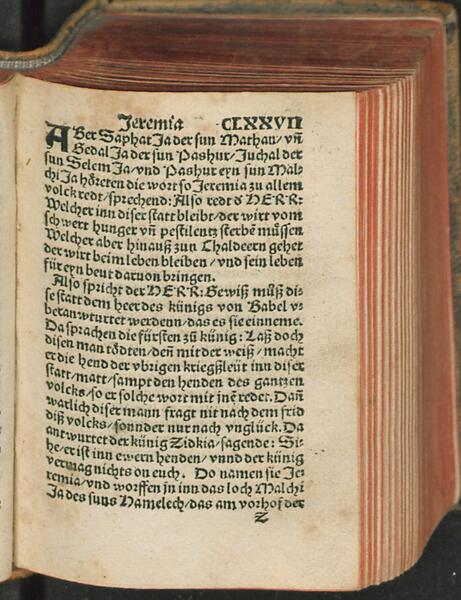 Jeremia CLXXVII
ABer Saphat Ja der sun Mathan/ vñ
Gedal Ja der sun Pashur/ Juchal der
sun Selem Ja/ vnd Pashur eyn sun Mal-
chi Ja höreten die wort so Jeremia zu allem
volck redt/ sprechend: Also redt d HERR:
Welcher inn diser statt bleibt/ der wirt vom
schwert hunger vñ pestilentz sterbē můssen
Welcher aber hinauß zun Chaldeern gehet
der wirt beim leben bleiben/ vnd sein leben
für eyn beut daruon bringen.
Also spricht der HERR: Gewiß můß di-
se statt dem heer des künigs von Babel v-
beranwturtet werdenn/ das es sie einneme.
Da sprachen die fürsten zů künig: Laß doch
disen man tödten/ deñ mit der weiß/ macht
er die hend der vbrigen kriegßleüt inn diser
statt/ matt/ sampt den henden des gantzen
volcks/ so er solche wort mit jnē redet. Dañ
warlich diser mann fragt nit nach dem frid
diß volcks/ sonnder nur nach vnglück. Da
antwurtet der künig Zidkia/ sagende: Si-
he/ er ist inn ewern henden/ vnnd der künig
vermag nichts on euch. Do namen sie Je-
remia/ vnd worffen jn inn das loch Malchi
Ja des suns Hamelech/ das am vorhof der
Z